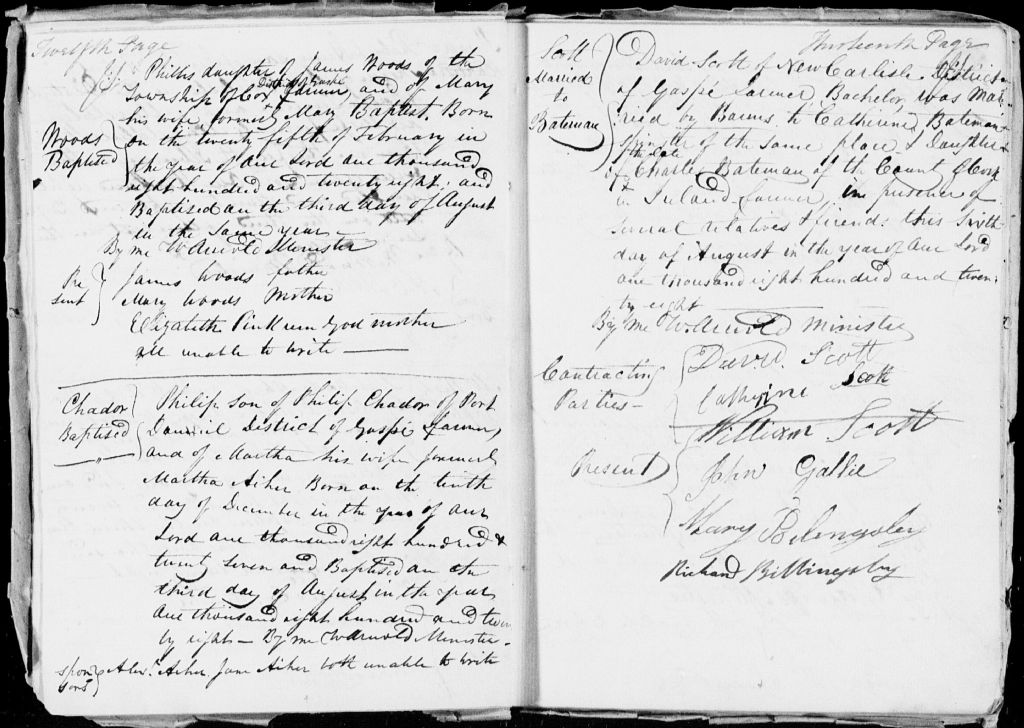 Twelfth Page
Woods
Baptised
Phillis daughter of James Woods of the
Township of Cox District of Gaspé farmer, and of Mary
his wife formerly Mary Baptist, Born
on the twenty fifth of February in
the year of our Lord one thousand
eight hundred and twenty eight; and
Baptized on the third day of August
in the same year –
By me W Arnold Minister
Pre
sent
James Woods father
Mary Woods Mother
Elizabeth Pinkum God mother
all unable to write —
Chador
Baptised
Philip son of Philip Chador of Port
Daniel District of Gaspé farmer,
and of Martha his wife formerly
Martha Asher Born on the tenth
day of December in the year of our
Lord one thousand eight hundred &
twenty seven and Baptised on the
third day of August in the year
one thousand eight hundred and twen
ty eight – By me W Arnold Minister –
spon
sors
Alexr. Asher, Jane Asher both unable to write
Thirteenth Page
Scott
Married
to
Bateman
David Scott of New Carlisle District
of Gaspe farmer Bachelor was Mar
ried by Banns to Catherine Bateman
Spinster of the same place & Daughter
of the late Charles Bateman of the County of Cork
in Ireland farmer, in presence of
several relatives & friends this sixth
day of August in the year of our Lord
one thousand eight hundred and twen
ty eight
By me W Arnold Minister
Contracting
Parties –
David Scott
Catherine Scott
Present
William Scott
John Gallie
Mary Belengsley
Richard Billingsby